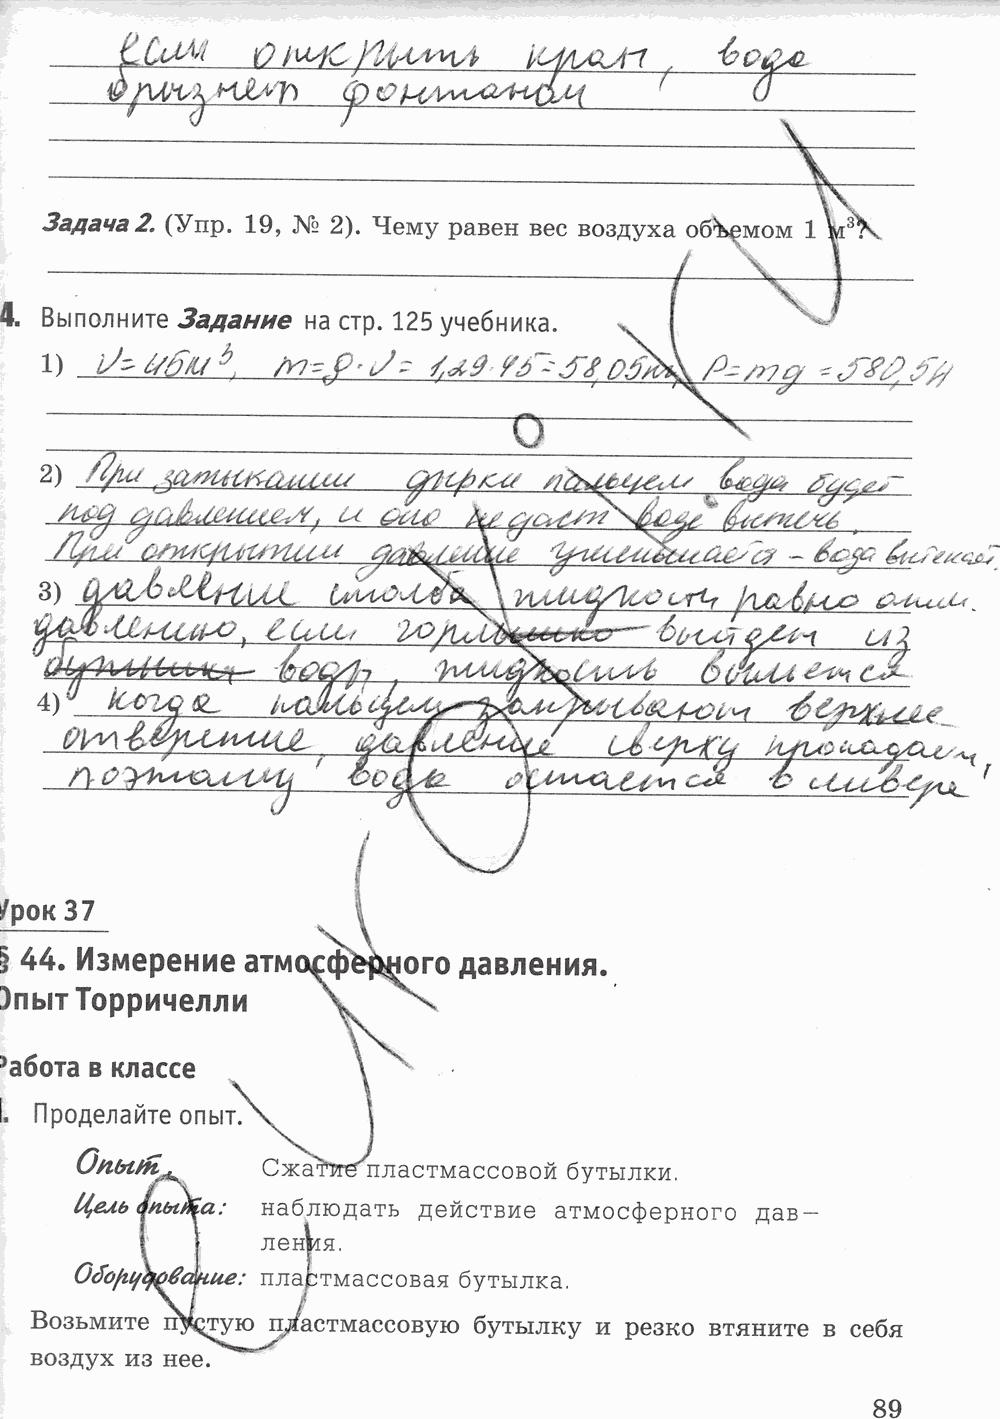 если открыть кран, вода
брызнет фонтаном
Задача 2. (Упр. 19, № 2). Чему равен вес воздуха объемом 1 м³?
4. Выполните Задание на стр. 125 учебника.
1) V=45м³, m=ρ·V= 1,29·45=58,05кг, P=mg=580,5Н
2) При затыкании дырки пальцем вода будет
под давлением, и оно не даст воде вытечь.
При открытии давление уменьшается – вода вытекает.
3) давление столба жидкости равно атм.
давлению, если горлышко выйдет из
бутылки воды, жидкость выльется
4) когда пальцем закрывают верхнее
отверстие, давление сверху пропадает,
поэтому вода остается в ливере
Урок 37
§ 44. Измерение атмосферного давления.
Опыт Торричелли
Работа в классе
1. Проделайте опыт.
Опыт. Сжатие пластмассовой бутылки.
Цель опыта: наблюдать действие атмосферного дав–
ления.
Оборудование: пластмассовая бутылка.
Возьмите пустую пластмассовую бутылку и резко втяните в себя
воздух из нее.
89